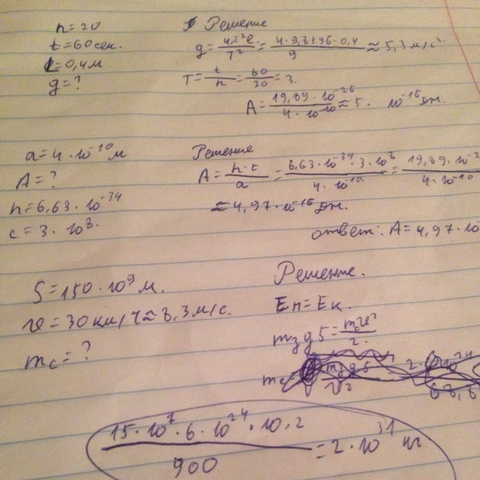 n=20
t=60сек.
l=0,4м
g=?
Решение
g = 4π²l / T² = 4·9,8596·0,4 / 9 ≈ 5,3 м/с².
T = t / n = 60 / 20 = 3.
A = 19,89·10⁻²⁶ / 4·10⁻¹⁰ ≈ 5· 10⁻¹⁶ Дж.
a=4·10⁻¹⁰ м
A=?
h=6,63·10⁻³⁴
c=3·10⁸.
Решение
A = h·t / a = 6,63·10⁻³⁴·3·10⁸ / 4·10⁻¹⁰ = 19,89·10⁻² / 4·10⁻¹⁰
≈4,97·10⁻¹⁶ Дж.
ответ: A=4,97·10
S=150·10⁹ м.
v=30км/ч≈8,3м/с.
mc=?
Решение.
Еп=Ек.
mзgS = mv² / 2.
15·10⁷·6·10²⁴·10·2 / 900 = 2·10³¹ кг